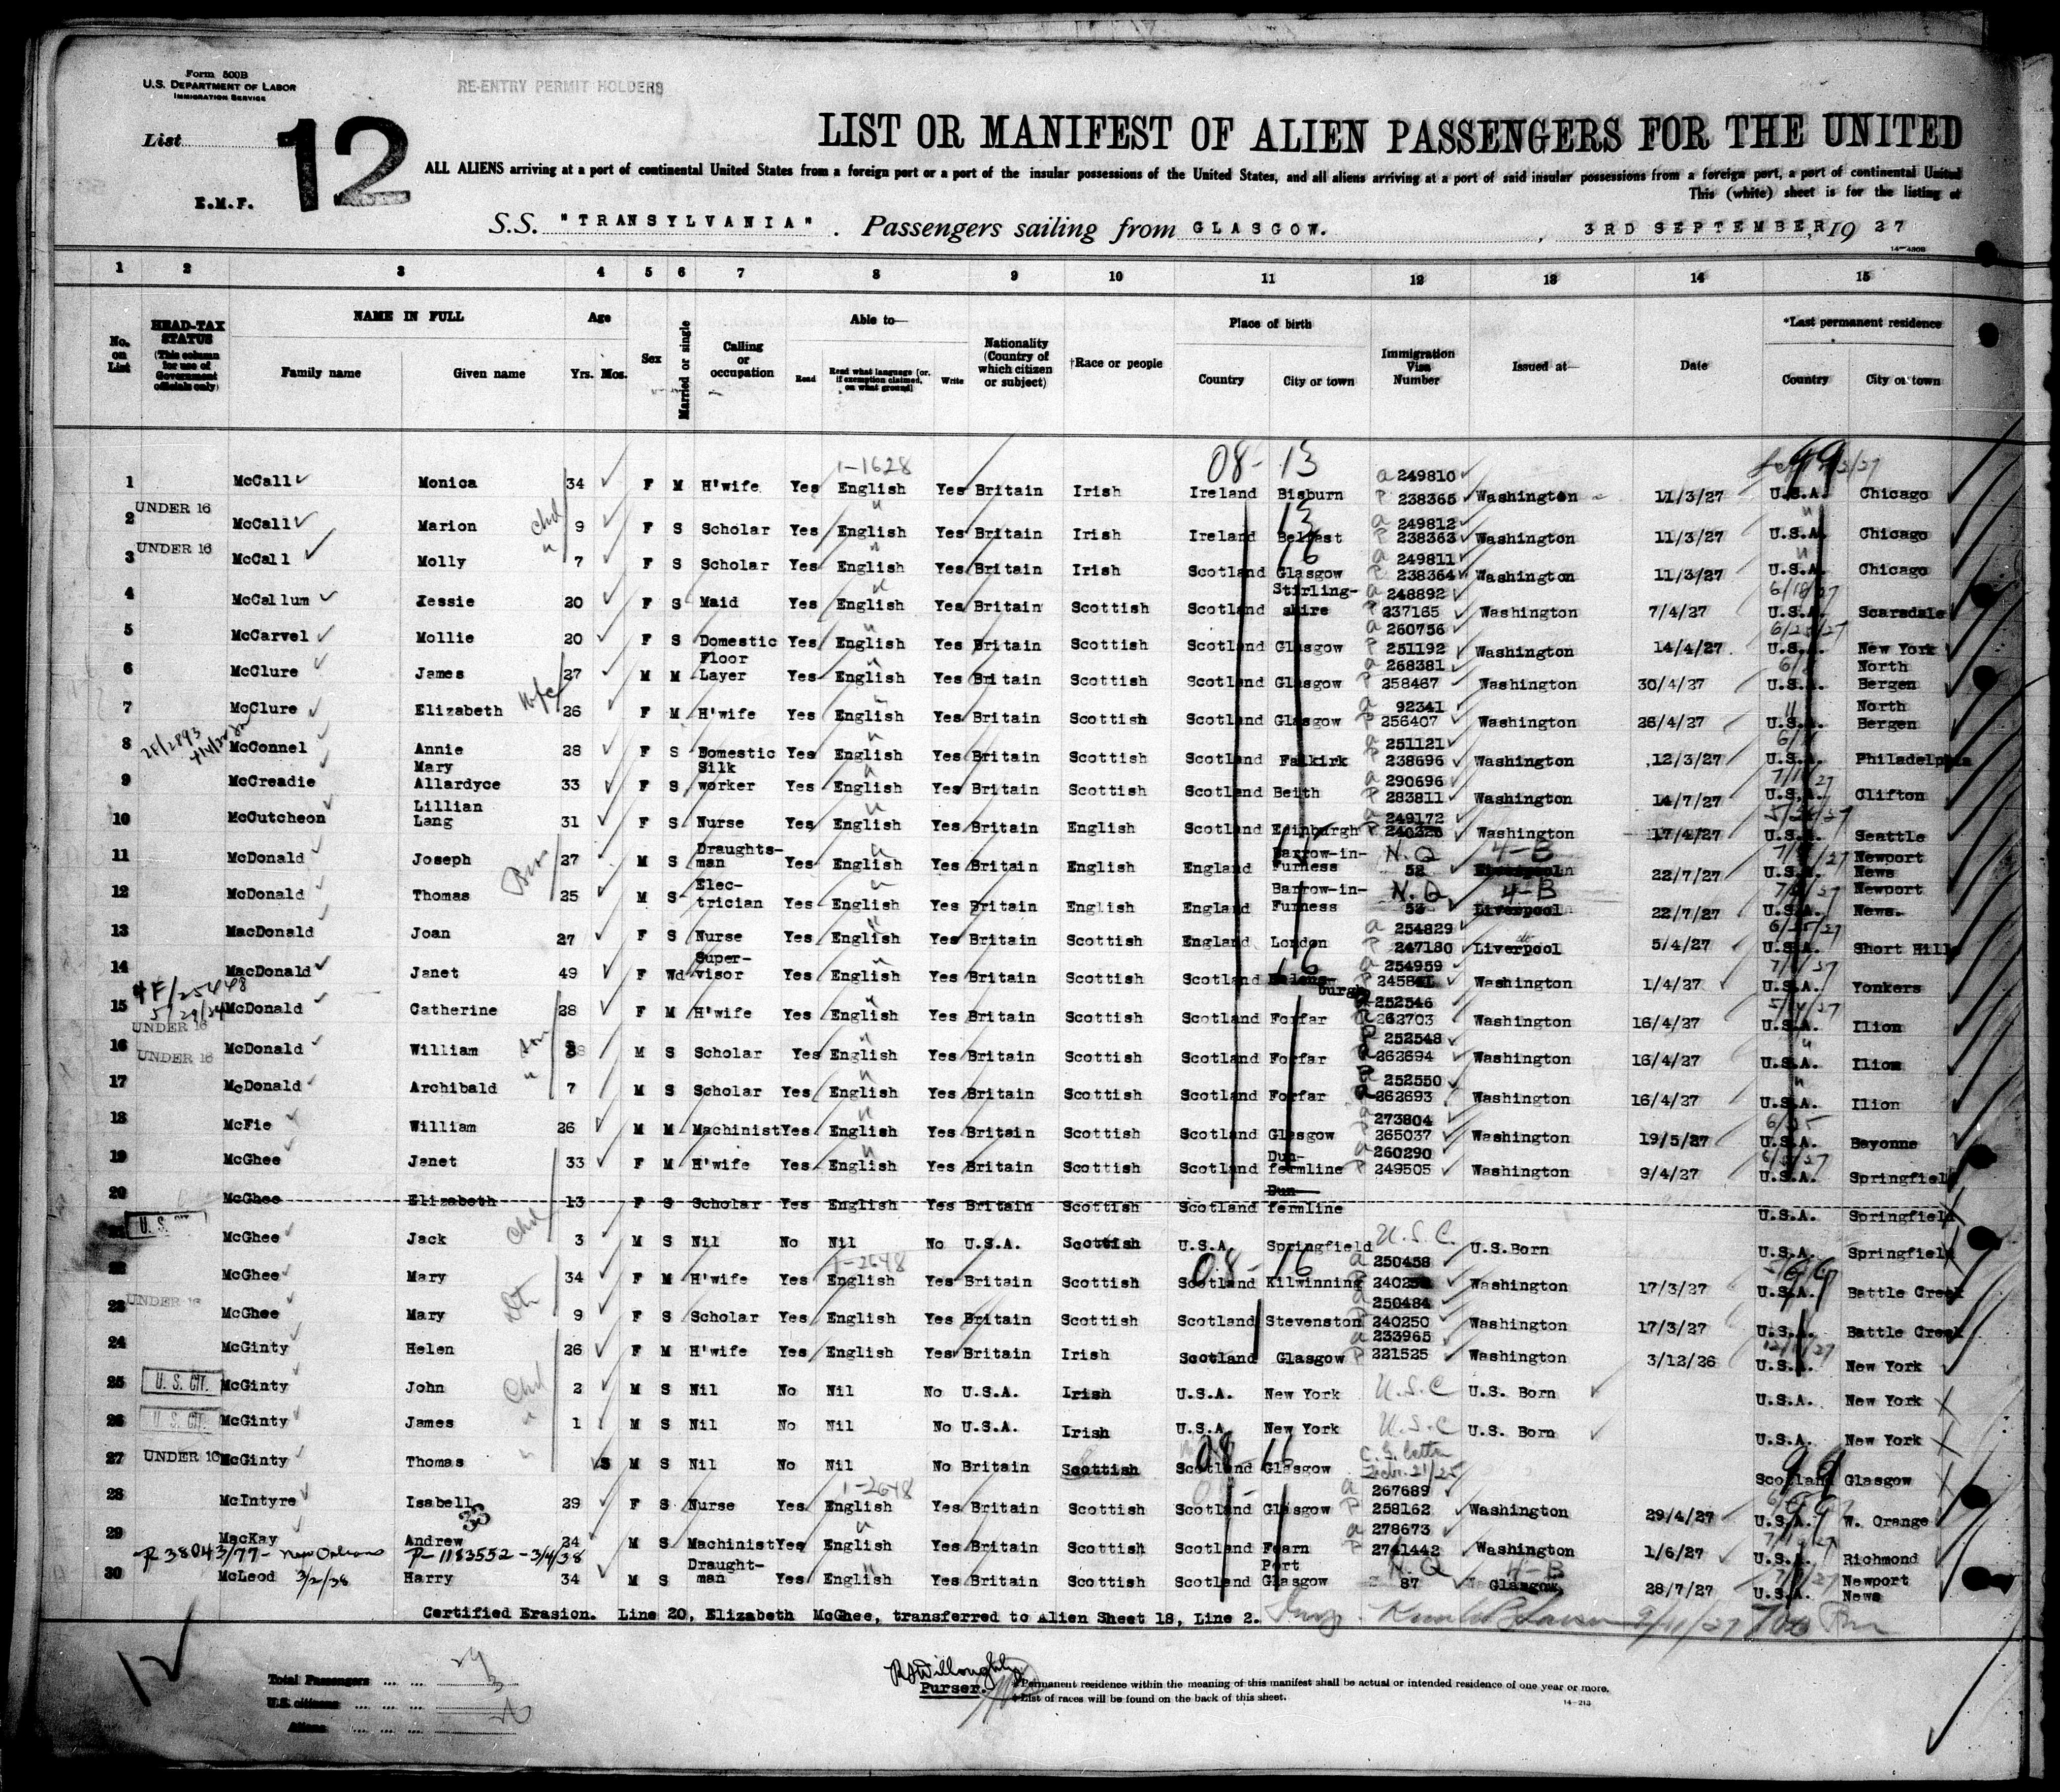 Form 500B
U.S. DEPARTMENT OF LABOR
IMMIGRATION SERVICE
RE-ENTRY PERMIT HOLDERS
List 12
E.M.F.
LIST OR MANIFEST OF ALIEN PASSENGERS FOR THE UNITED
ALL ALIENS arriving at a port of continental United States from a foreign port or a port of the insular possessions of the United States, and all aliens arriving at a port of said insular possessions from a foreign port, a port of continental United
This (white) sheet is for the listing of
S.S. "TRANSYLVANIA". Passengers sailing from GLASGOW. , 3RD SEPTEMBER, 19 27
14-430B
1 2 3 4 5 6 7 8 9 10 11 12 13 14 15
No. on List
HEAD-TAX STATUS (This column for use of Government officials only)
NAME IN FULL
Family name Given name
Age Yrs. Mos.
Sex
Married or single
Calling or occupation
Able to—
Read Read what language (or, if exemption claimed, on what ground) Write
Nationality (Country of which citizen or subject)
†Race or people
Place of birth
Country City or town
Immigration Visa Number
Issued at—
Date
*Last permanent residence
Country City or town
1-1628 08-13 99
1 McCall Monica 34 F M H'wife Yes English Yes Britain Irish Ireland Bisburn a 249810 P 238365 Washington 11/3/27 U.S.A. Chicago
UNDER 16
2 McCall Marion chd 9 F S Scholar Yes English Yes Britain Irish Ireland Belfast 13 a 249812 P 238363 Washington 11/3/27 U.S.A. Chicago
UNDER 16
3 McCall Molly " 7 F S Scholar Yes English Yes Britain Irish Scotland Glasgow 16 a 249811 P 238364 Washington 11/3/27 U.S.A. Chicago
4 McCallum Jessie 20 F S Maid Yes English Yes Britain Scottish Scotland Stirling-shire a 248892 P 237165 Washington 7/4/27 U.S.A. Scarsdale
5 McCarvel Mollie 20 F S Domestic Yes English Yes Britain Scottish Scotland Glasgow a 260756 P 251192 Washington 14/4/27 U.S.A. New York
6 McClure James 27 M M Floor Layer Yes English Yes Britain Scottish Scotland Glasgow a 268381 P 258467 Washington 30/4/27 U.S.A. North Bergen
7 McClure Elizabeth Wife 26 F M H'wife Yes English Yes Britain Scottish Scotland Glasgow a 92341 P 256407 Washington 26/4/27 U.S.A. North Bergen
8 McConnel Annie 28 F S Domestic Yes English Yes Britain Scottish Scotland Falkirk a 251121 P 238696 Washington 12/3/27 U.S.A. Philadelphia
9 McCreadie Mary Allardyce 33 F S Silk worker Yes English Yes Britain Scottish Scotland Beith a 290696 P 283811 Washington 14/7/27 U.S.A. Clifton
10 McCutcheon Lillian Lang 31 F S Nurse Yes English Yes Britain English Scotland Edinburgh a 249172 P Washington 17/4/27 U.S.A. Seattle
11 McDonald Joseph 27 M S Draughts-man Yes English Yes Britain English England Barrow-in-Furness N.Q 52 4-B 22/7/27 U.S.A. Newport News
12 McDonald Thomas Bro 25 M S Elec-trician Yes English Yes Britain English England Barrow-in-Furness N.Q 53 4-B Liverpool 22/7/27 U.S.A. Newport News.
13 MacDonald Joan 27 F S Nurse Yes English Yes Britain Scottish England London a 254829 P 247180 Liverpool 5/4/27 U.S.A. Short Hills
14 MacDonald Janet 49 F Wd Super-visor Yes English Yes Britain Scottish Scotland 16 a 254959 P Washington 1/4/27 U.S.A. Yonkers
15 McDonald Catherine 28 F M H'wife Yes English Yes Britain Scottish Scotland Forfar 252546 262703 Washington 16/4/27 U.S.A. Ilion
UNDER 16
16 McDonald William son M S Scholar Yes English Yes Britain Scottish Scotland Forfar 252548 262694 Washington 16/4/27 U.S.A. Ilion
UNDER 16
17 McDonald Archibald " 7 M S Scholar Yes English Yes Britain Scottish Scotland Forfar 252550 262693 Washington 16/4/27 U.S.A. Ilion
18 McFie William 26 M M Machinist Yes English Yes Britain Scottish Scotland Glasgow a 273804 P 265037 Washington 19/5/27 U.S.A. Bayonne
19 McGhee Janet 33 F M H'wife Yes English Yes Britain Scottish Scotland Dun-fermline a 260290 P 249505 Washington 9/4/27 U.S.A. Springfield
20 McGhee Elizabeth 13 F S Scholar Yes English Yes Britain Scottish Scotland Dun-fermline U.S.A. Springfield
U.S. CIT.
McGhee Jack Chd 3 M S Nil No Nil No U.S.A. Scottish U.S.A. Springfield U.S.C. U.S.Born U.S.A. Springfield
1-2648 08-16
22 McGhee Mary 34 F M H'wife Yes English Yes Britain Scottish Scotland Kilwinning a 250458 P Washington 17/3/27 U.S.A. Battle Creek
UNDER 16
23 McGhee Mary Dth 9 F S Scholar Yes English Yes Britain Scottish Scotland Stevenston 250484 240250 Washington 17/3/27 U.S.A. Battle Creek
24 McGinty Helen 26 F M H'wife Yes English Yes Britain Irish Scotland Glasgow a 233965 P 221525 Washington 3/12/26 U.S.A. New York
25 U.S. CIT. McGinty John Chd 2 M S Nil No Nil No U.S.A. Irish U.S.A. New York U.S.C U.S. Born U.S.A. New York
26 U.S. CIT. McGinty James " 1 M S Nil No Nil No U.S.A. Irish U.S.A. New York U.S.C U.S. Born U.S.A. New York
27 UNDER 16 McGinty Thomas " M S Nil No Nil No Britain Scottish Scotland Glasgow 08-16 Scotland Glasgow 99
1-2648
28 McIntyre Isabell 29 F S Nurse Yes English Yes Britain Scottish Scotland Glasgow a 267689 P 258162 Washington 29/4/27 U.S.A. W. Orange
29 MacKay Andrew 33 24 M S Machinist Yes English Yes Britain Scottish Scotland Fearn a 278673 P 2741442 Washington 1/6/27 U.S.A. Richmond
R 38043/77- New Orleans P-1183552-3/4/38
30 McLeod 3/2/38 Harry 34 M S Draught-man Yes English Yes Britain Scottish Scotland Port Glasgow N.Q 87 4-B Glasgow 28/7/27 U.S.A. Newport News
Certified Erasion. Line 20, Elizabeth McGhee, transferred to Alien Sheet 18, Line 2.
12
Total Passengers ... ...
U.S. citizens ... ... ... 3
Aliens ... ... ...
R Willoughby
Purser.
*Permanent residence within the meaning of this manifest shall be actual or intended residence of one year or more.
†List of races will be found on the back of this sheet.
14-213